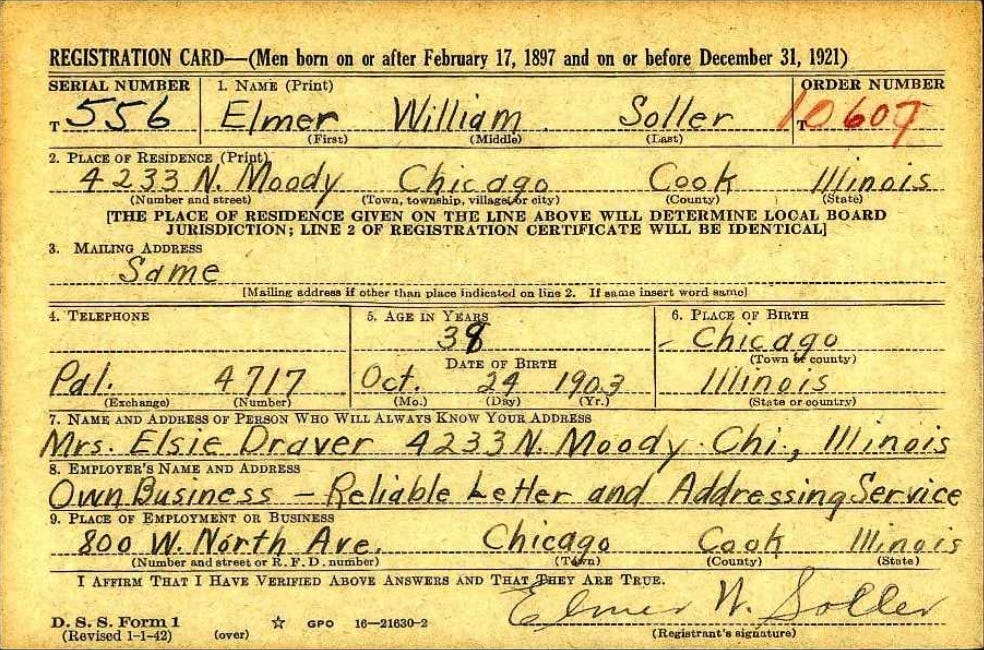 REGISTRATION CARD—(Men born on or after February 17, 1897 and on or before December 31, 1921)
SERIAL NUMBER 1. NAME (Print) ORDER NUMBER
T 556 Elmer William Soller T 10607
(First) (Middle) (Last)
2. PLACE OF RESIDENCE (Print)
4233 N. Moody Chicago Cook Illinois
(Number and street) (Town, township, village, or city) (County) (State)
[THE PLACE OF RESIDENCE GIVEN ON THE LINE ABOVE WILL DETERMINE LOCAL BOARD
JURISDICTION; LINE 2 OF REGISTRATION CERTIFICATE WILL BE IDENTICAL]
3. MAILING ADDRESS
Same
[Mailing address if other than place indicated on line 2. If same insert word same]
4. TELEPHONE 5. AGE IN YEARS 6. PLACE OF BIRTH
38 Chicago
DATE OF BIRTH (Town or county)
Pal. 4717 Oct. 24 1903 Illinois
(Exchange) (Number) (Mo.) (Day) (Yr.) (State or country)
7. NAME AND ADDRESS OF PERSON WHO WILL ALWAYS KNOW YOUR ADDRESS
Mrs. Elsie Draver 4233 N. Moody. Chi., Illinois
8. EMPLOYER'S NAME AND ADDRESS
Own Business – Reliable Letter and Addressing Service
9. PLACE OF EMPLOYMENT OR BUSINESS
800 W. North Ave. Chicago Cook Illinois
(Number and street or R. F. D. number) (Town) (County) (State)
I AFFIRM THAT I HAVE VERIFIED ABOVE ANSWERS AND THAT THEY ARE TRUE.
Elmer W. Soller
D. S. S. Form 1
(Revised 1-1-42) (over) ☆ GPO 16—21630-2 (Registrant's signature)